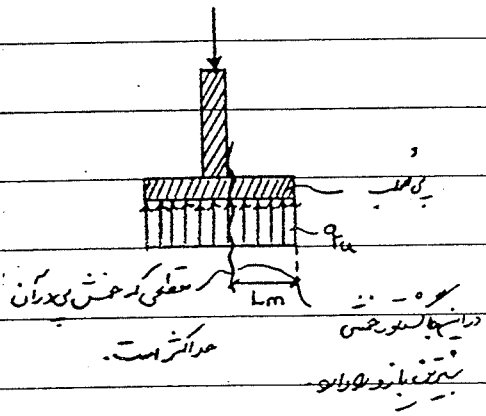 پی صلب
qu
Lm
مقطعی که خمش پی در آن
حداکثر است.
در اینجا لنگر خمشی
بیشترین بازو را دارد